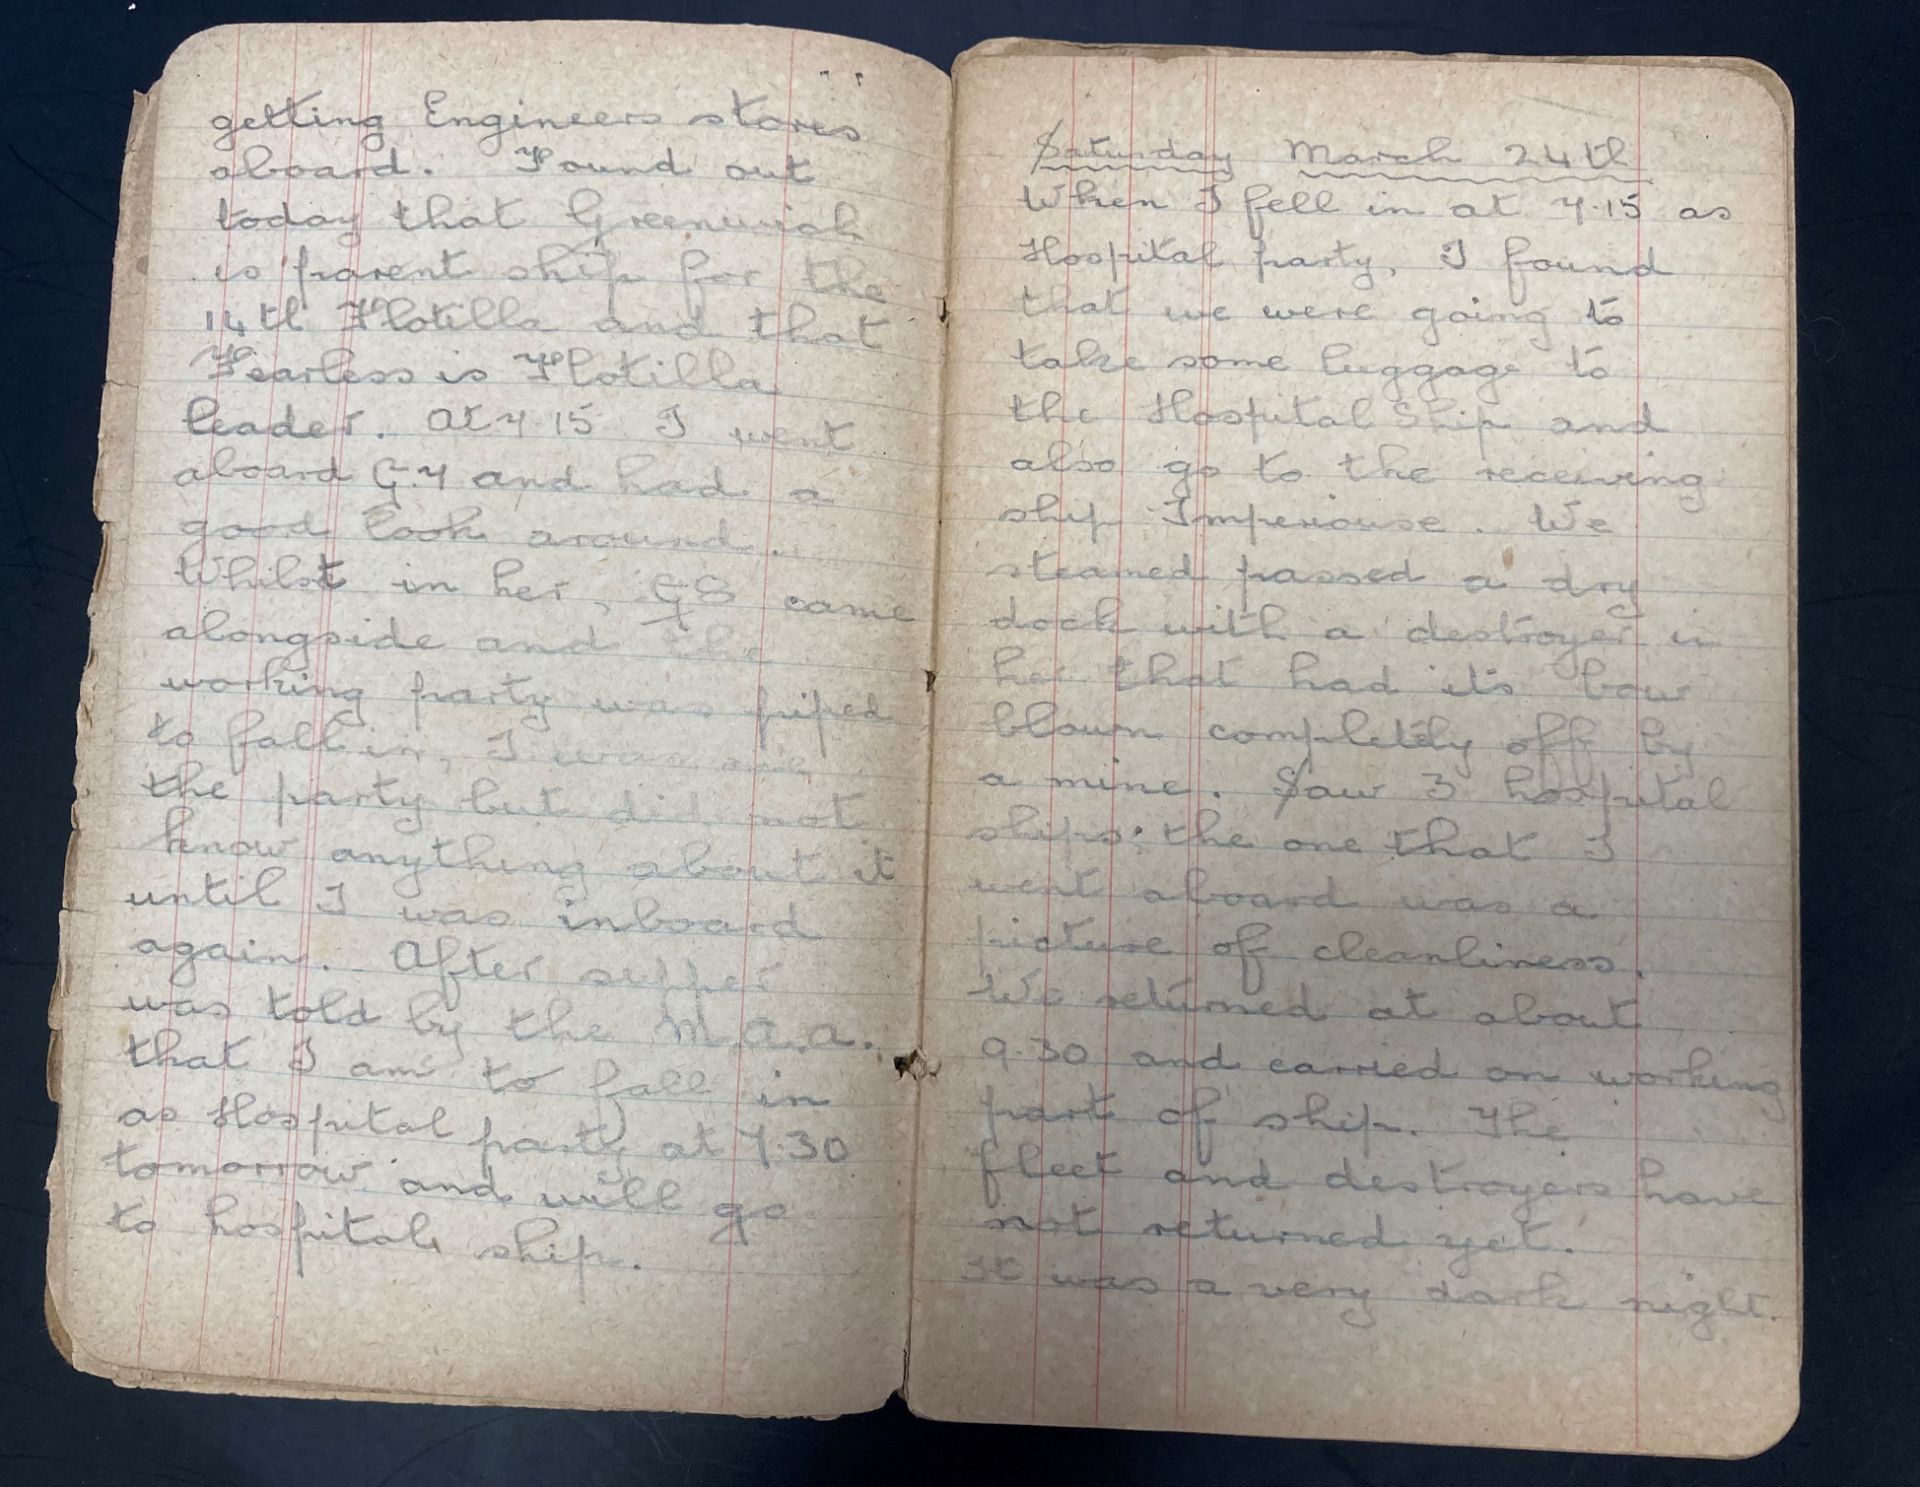 getting Engineers stores
aboard. Found out
today that Greenwich
is parent ship for the
14th Flotilla and that
Fearless is Flotilla
leader. At 7.15 I went
aboard G.7 and had a
good look around.
Whilst in her, G8 came
alongside and the
working party was piped
to fall in, I was one
the party but did not
know anything about it
until I was inboard
again. After supper
was told by the M.A.A.
that I am to fall in
as Hospital party at 7.30
tomorrow and will go
to hospital ship.
Saturday March 24th
When I fell in at 7.15 as
Hospital party, I found
that we were going to
take some luggage to
the Hospital Ship and
also go to the receiving
ship Imperiouse. We
steamed passed a dry
dock with a destroyer in
her that had its bow
blown completely off by
a mine. Saw 3 hospital
ships; the one that I
went aboard was a
picture of cleanliness.
We returned at about
9.30 and carried on working
part of ship. The
fleet and destroyers have
not returned yet.
It was a very dark night.